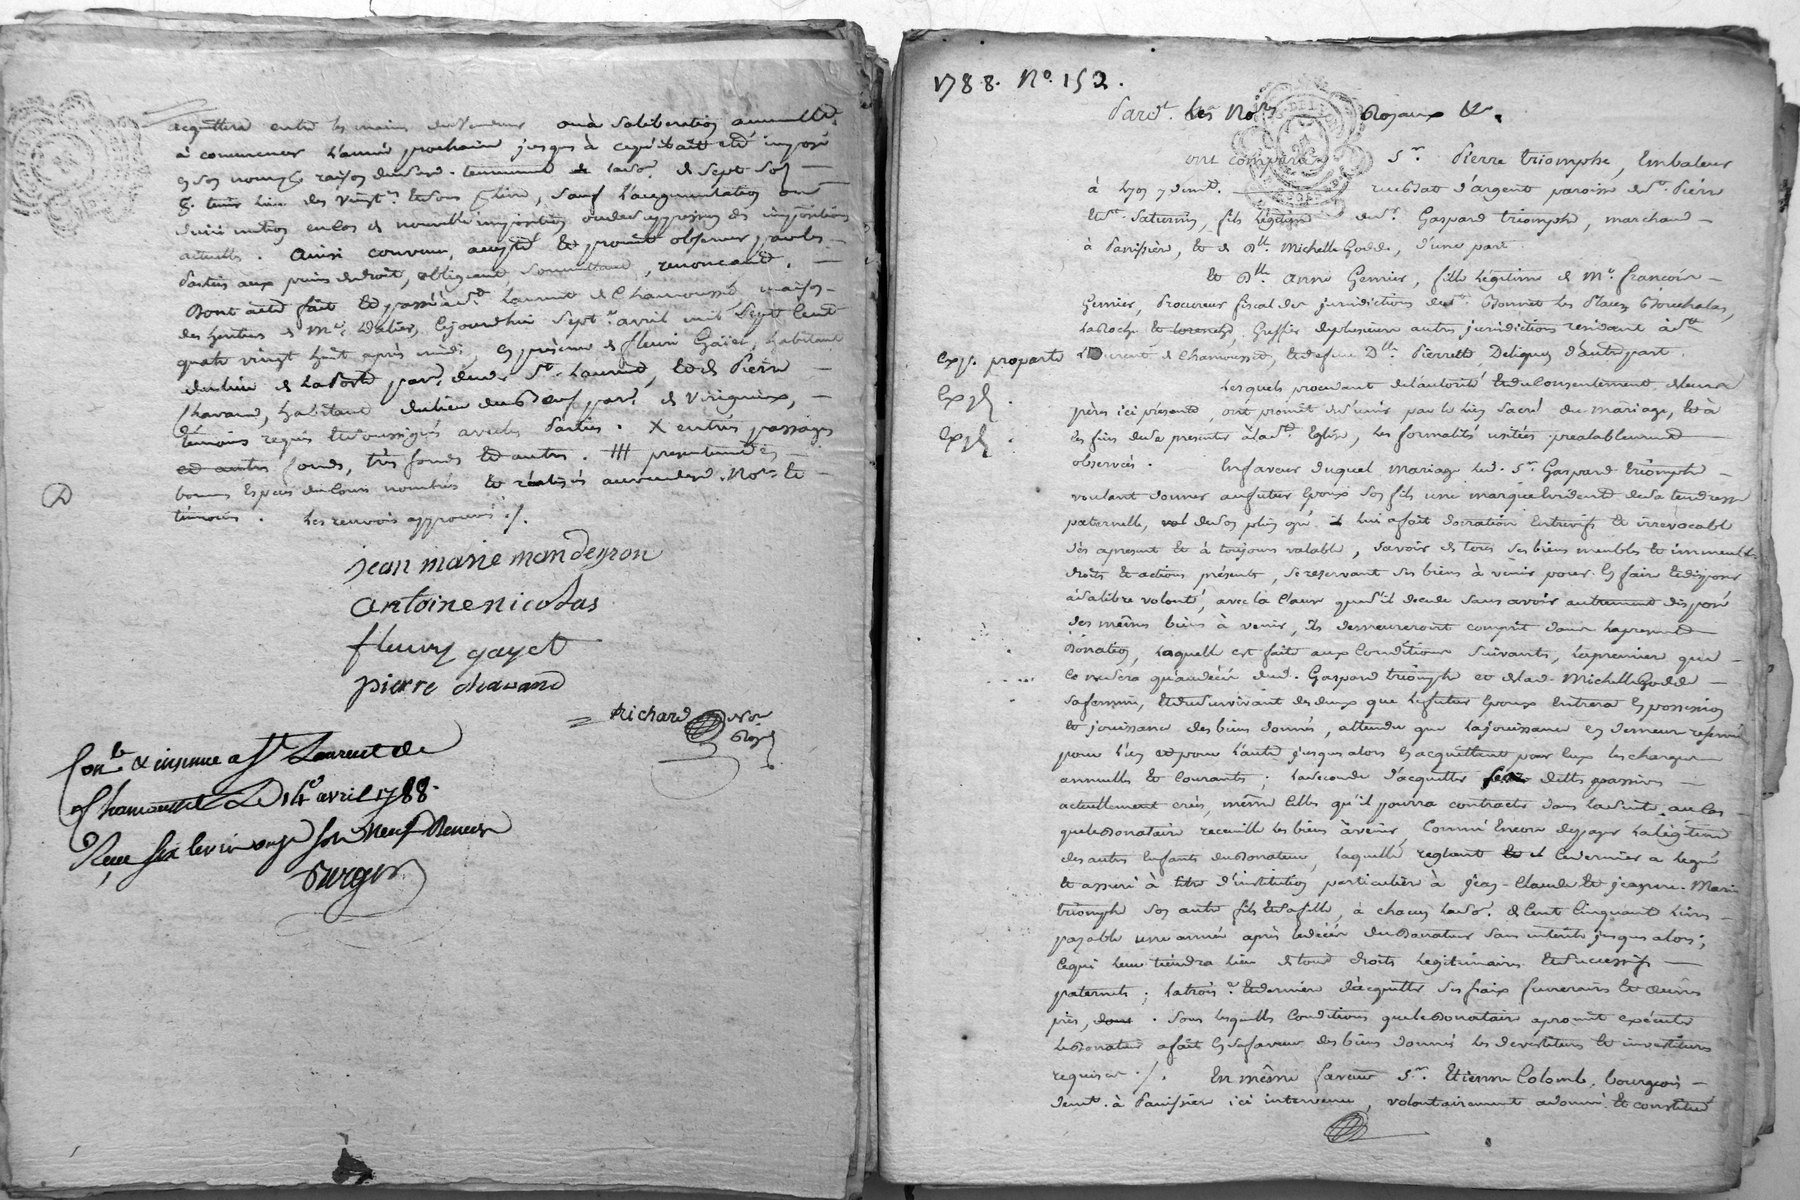 acquittera entre les mains du vendeur ou à sa libération annuelle
à commencer l'année prochaine jusques à ce qu'il ait été imposé
en son nom, raison dud. tennement de lad. de sept sols
tenir lieu des vingt. sauf l'augmentation ou
diminution en cas de nouvelle imposition ou de suppression des impositions
actuelles. Ainsi convenu, accepté et promit observer par les
Parties aux peines de droit, obligeant soumettant, renonçant,
Dont acte fait et passé aud. Laurent de Chamousset maison
des héritiers de Me. cejourdhui sept avril mil sept cent
quatre vingt huit après midi, en présence de fleuri Gaiet, habitant
du lieu de La Porte par. dud. St. Laurent, et de Pierre
Chavand, habitant du lieu du par. de Virigneux,
témoins requis et soussignés avec les Parties. X entrées passages
et autres fonds, très fonds et autres. ### presentement en
bonnes Espèces du cours nombrés et réalisés au vu desd. Nores et
témoins. Les renvois approuvés ./.
jean marie mondesron
antoine nicolas
fleury gayet
pierre chavand
Richard Nore
Royal
Con.lé & insinué a St Laurent de
Chamousset Le 14e avril 1788.
Reçu six livres onze sols neuf deniers
1788. No. 152.
Pardt. Les Nores Royaux &c.
ont comparu Sr. Pierre triomphe, Emballeur
à Lyon y demt. rue plat d'argent paroisse de St. Pierre
et St. Saturnin, fils légitime de Sr. Gaspard triomphe, marchand
à Panissière, et de Dlle. Michelle Godde, d'une part.
Et Dlle. Anne Gernier, fille légitime de Me. françois
Gernier, Procureur fiscal des juridictions de St. Bonnet les Places, Bouchalas,
La Roche et Lorenche, Greffier de plusieurs autres juridictions résidant à St.
Exp. pro parte Laurent de Chamousset, et de feue Dlle. Pierrette Deligny d'autre part.
Exp. Lesquels procédant de l'autorité et du Consentement de leurs
pères ici présents, ont promit de s'unir par le lien Sacré du mariage, et à
Exp. les fins de se presenter à lad. Eglise, les formalités usitées préalablement
observées. En faveur duquel mariage led. Sr. Gaspard triomphe
voulant donner au futur Epoux son fils une marque évidente de sa tendresse
paternelle, de son plein gré il lui a fait donation entrevifs et irrevocable
dès apresent et à toujours valable, savoir de tous ses biens meubles et immeubles
droits et actions présents, se reservant ses biens à venir pour en faire et disposer
à sa libre volonté, avec la clause que s'il decede sans avoir autrement disposé
des mêmes biens à venir, ils demeureront comprit dans la presente
Donation, laquelle est faite aux conditions suivantes, la premiere que
ce ne sera qu'au décès dud. Gaspard triomphe et de lad. Michelle Godde
sa femme, et du survivant des deux que le futur Epoux entrera en possession
et jouissance des biens donnés, attendu que la jouissance en demeure reservée
pour l'un et pour l'autre jusques alors en acquittant par Eux les charges
annuelles et courantes; la seconde d'acquitter dettes passives
actuellement crées, même Celles qu'il pourra contracter dans la suite, au cas
que le Donataire recueille les biens à venir, Comme Encore de payer la légitime
des autres Enfants du Donateur, laquelle reglant ce dernier a legué
et assuré à titre d'institution particulière à jean-Claude et jeanne-Marie
triomphe son autre fils et sa fille, à chacun la so. de Cent Cinquante livres
payable une année après le décès du Donateur sans intérêts jusques alors;
ce qui leur tiendra lieu de tous droits legitimaires et successifs
paternels; la trois.e et derniere d'acquitter ses fraix funeraires et oeuvres
pies, dont. Sous lesquelles Conditions que le Donataire a promit exécuter
le Donateur a fait en sa faveur des biens donnés les devestitures et investitures
requises ./. En même faveur Sr. Etienne Colomb, bourgeois
demt. à Panissière ici intervenu, volontairement a donné et constitué